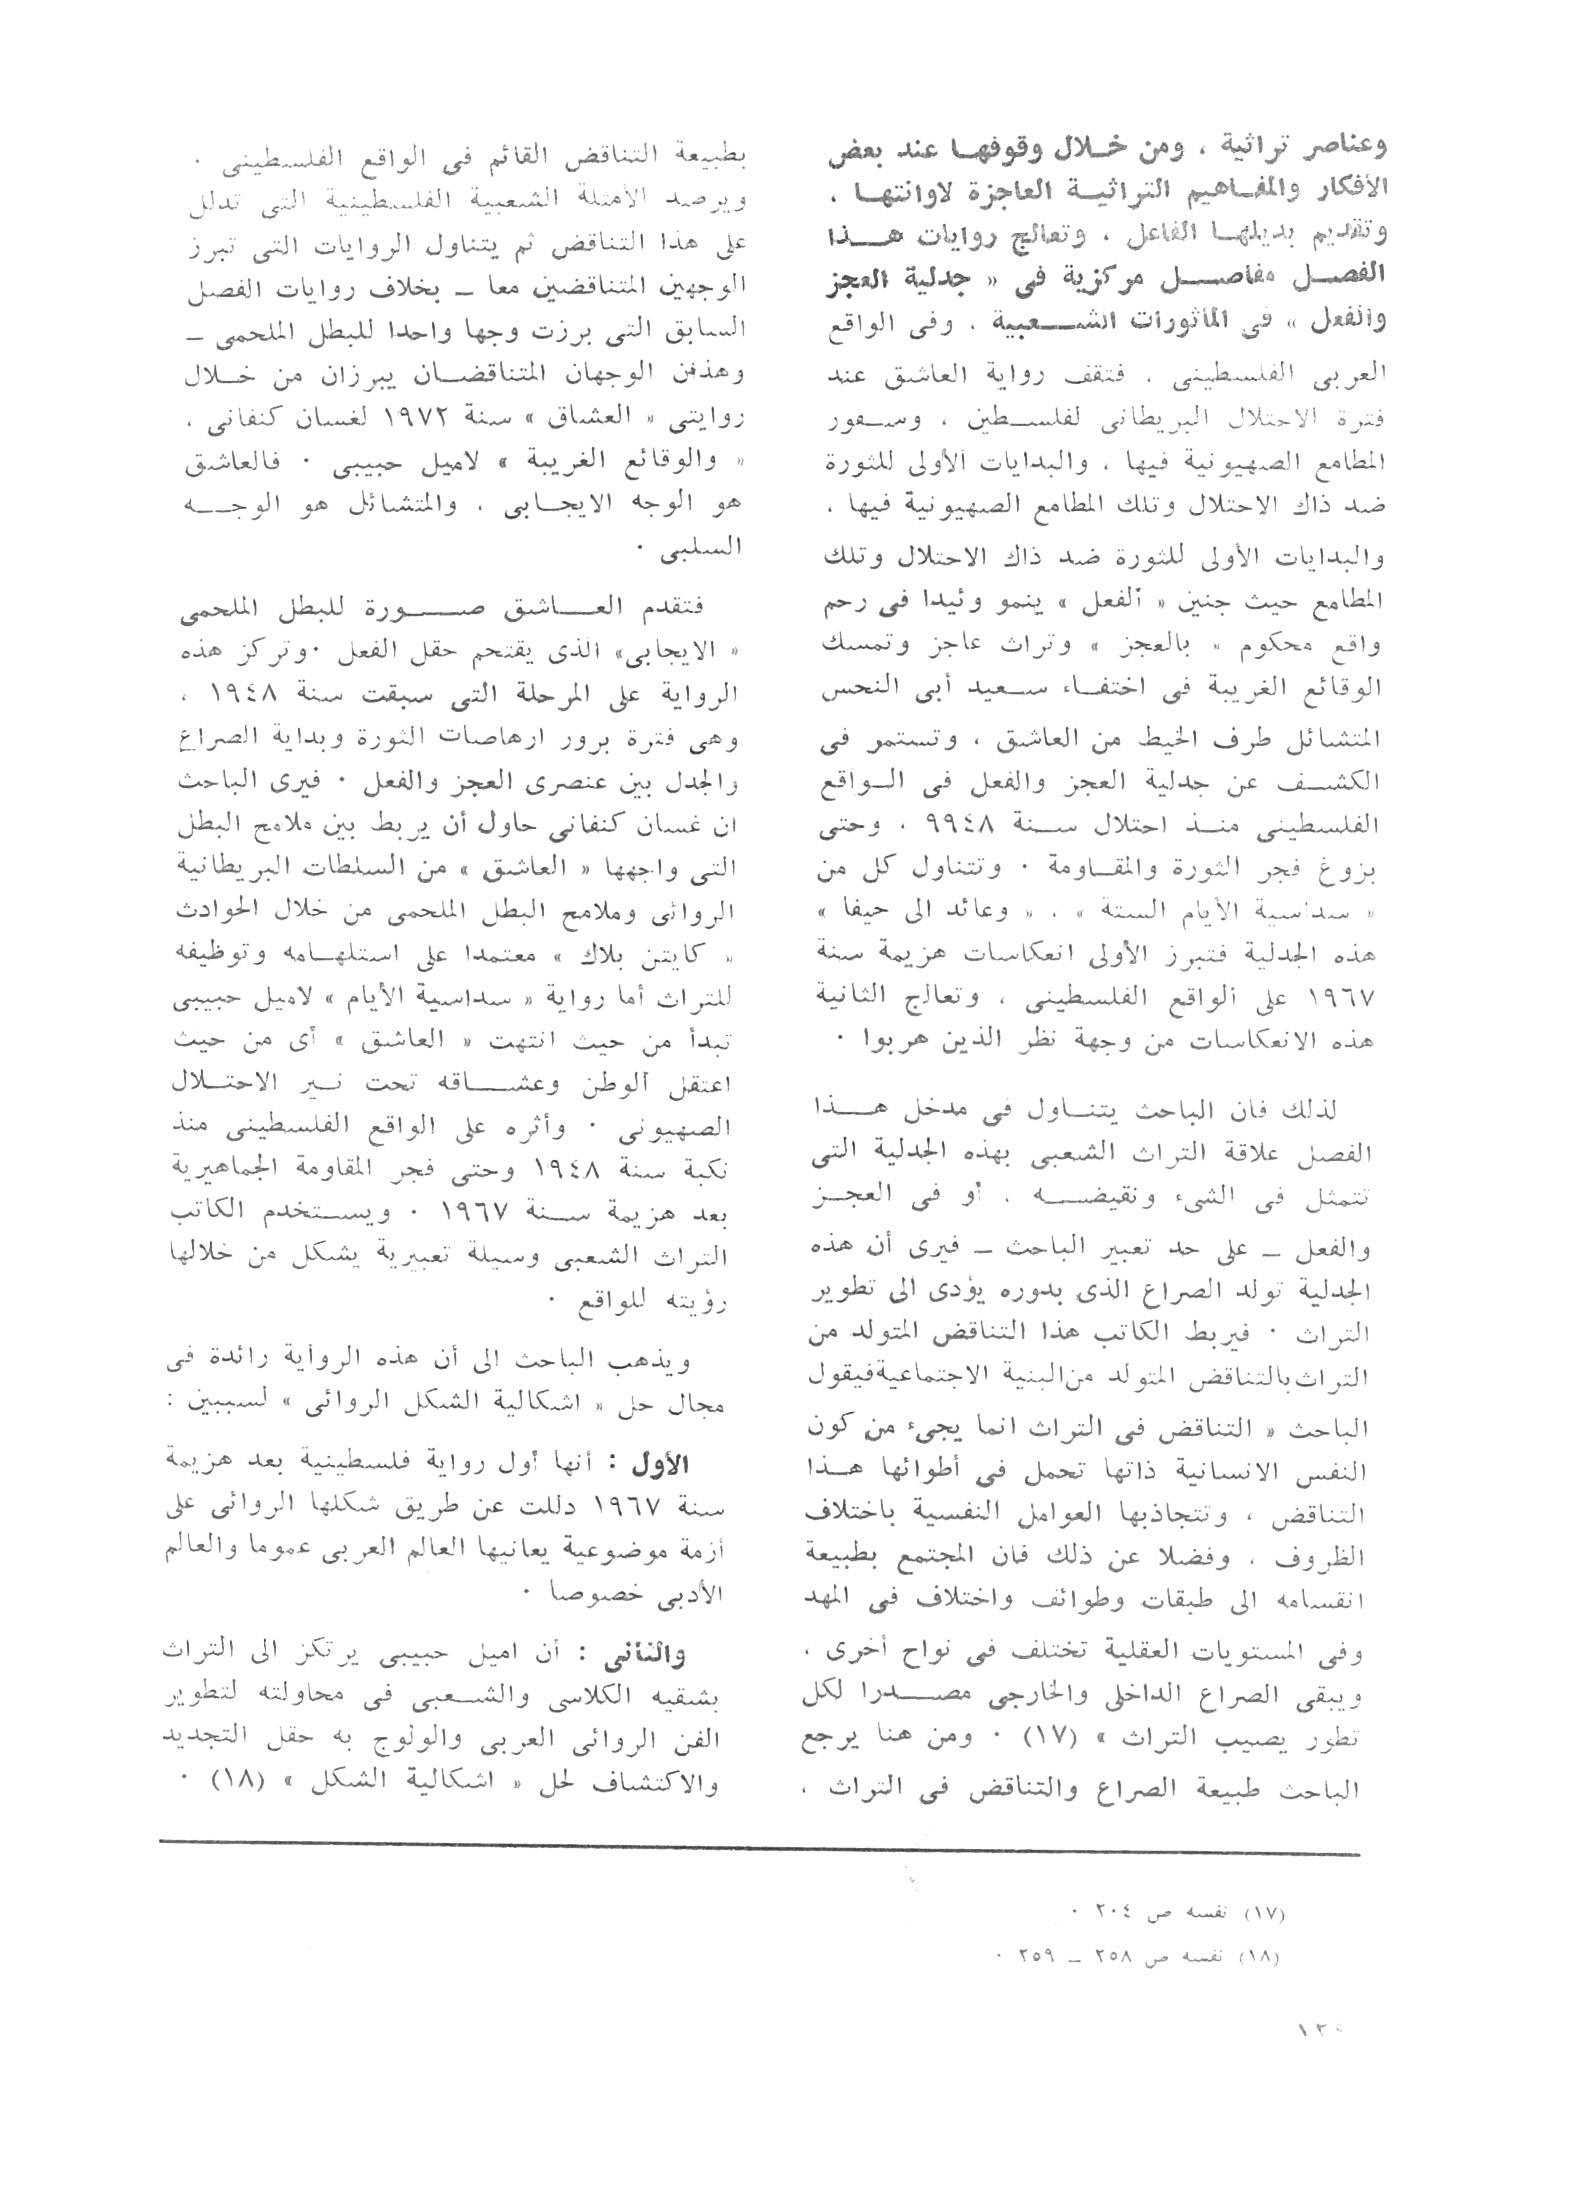 وعناصر تراثية ، ومن خلال وقوفها عند بعض
الأفكار والمفاهيم التراثية العاجزة لاوانتها ،
وتقديم بديلها الفاعل ، وتعالج روايات هذا
الفصل مفاصل مركزية فى « جدلية العجز
والفعل » فى المأثورات الشعبية . وفى الواقع
العربى الفلسطينى ، فتقف رواية العاشق عند
فترة الاحتلال البريطانى لفلسطين ، وسفور
المطامع الصهيونية فيها ، والبدايات الأولى للثورة
ضد ذاك الاحتلال وتلك المطامع الصهيونية فيها ،
والبدايات الأولى للثورة ضد ذاك الاحتلال وتلك
المطامع حيث جنين « الفعل » ينمو وئيدا فى رحم
واقع محكوم « بالعجز » وتراث عاجز وتمسك
الوقائع الغريبة فى اختفاء سعيد أبى النحس
المتشائل طرف الخيط من العاشق ، وتستمر فى
الكشف عن جدلية العجز والفعل فى الواقع
الفلسطينى منذ احتلال سنة ٩٩٤٨ ، وحتى
بزوغ فجر الثورة والمقاومة ٠ وتتناول كل من
« سداسية الأيام الستة » ، « وعائد الى حيفا »
هذه الجدلية فتبرز الأولى انعكاسات هزيمة سنة
١٩٦٧ على الواقع الفلسطينى ، وتعالج الثانية
هذه الانعكاسات من وجهة نظر الذين هربوا ٠
لذلك فان الباحث يتناول فى مدخل هذا
الفصل علاقة التراث الشعبى بهذه الجدلية التى
تتمثل فى الشىء ونقيضه ، أو فى العجز
والفعل ــ على حد تعبير الباحث ــ فيرى أن هذه
الجدلية تولد الصراع الذى بدوره يؤدى الى تطوير
التراث ٠ فيربط الكاتب هذا التناقض المتولد من
التراث بالتناقض المتولد من البنية الاجتماعية فيقول
الباحث « التناقض فى التراث انما يجىء من كون
النفس الانسانية ذاتها تحمل فى أطوائها هذا
التناقض ، وتتجاذبها العوامل النفسية باختلاف
الظروف ، وفضلا عن ذلك فان المجتمع بطبيعة
انقسامه الى طبقات وطوائف واختلاف فى المهد
وفى المستويات العقلية تختلف فى نواح أخرى ،
ويبقى الصراع الداخلى والخارجى مصدرا لكل
تطور يصيب التراث » (١٧) ٠ ومن هنا يرجع
الباحث طبيعة الصراع والتناقض فى التراث ،
بطبيعة التناقض القائم فى الواقع الفلسطينى ٠
ويرصد الأمثلة الشعبية الفلسطينية التى تدلل
على هذا التناقض ثم يتناول الروايات التى تبرز
الوجهين المتناقضين معا ــ بخلاف روايات الفصل
السابق التى برزت وجها واحدا للبطل الملحمى ــ
وهذفن الوجهان المتناقضان يبرزان من خلال
روايتى « العشاق » سنة ١٩٧٢ لغسان كنفانى ،
« والوقائع الغريبة » لاميل حبيبى ٠ فالعاشق
هو الوجه الايجابى ، والمتشائل هو الوجه
السلبى ٠
فتقدم العاشق صورة للبطل الملحمى
« الايجابى» الذى يقتحم حقل الفعل ٠وتركز هذه
الرواية على المرحلة التى سبقت سنة ١٩٤٨ ،
وهى فترة برور ارهاصات الثورة وبداية الصراع
والجدل بين عنصرى العجز والفعل ٠ فيرى الباحث
ان غسان كنفانى حاول أن يربط بين ملامح البطل
التى واجهها « العاشق » من السلطات البريطانية
الروائى وملامح البطل الملحمى من خلال الحوادث
« كابتن بلاك » معتمدا على استلهامه وتوظيفه
للتراث أما رواية « سداسية الأيام » لاميل حبيبى
تبدأ من حيث انتهت « العاشق » أى من حيث
اعتقل الوطن وعشاقه تحت نير الاحتلال
الصهيونى ٠ وأثره على الواقع الفلسطينى منذ
نكبة سنة ١٩٤٨ وحتى فجر المقاومة الجماهيرية
بعد هزيمة سنة ١٩٦٧ ٠ ويستخدم الكاتب
التراث الشعبى وسيلة تعبيرية يشكل من خلالها
رؤيته للواقع ٠
ويذهب الباحث الى أن هذه الرواية رائدة فى
مجال حل « اشكالية الشكل الروائى » لسببين :
الأول : أنها أول رواية فلسطينية بعد هزيمة
سنة ١٩٦٧ دللت عن طريق شكلها الروائى على
أزمة موضوعية يعانيها العالم العربى عموما والعالم
الأدبى خصوصا ٠
والثانى : أن اميل حبيبى يرتكز الى التراث
بشقيه الكلاسى والشعبى فى محاولته لتطوير
الفن الروائى العربى والولوج به حقل التجديد
والاكتشاف لحل « اشكالية الشكل » (١٨) ٠
(١٧) نفسه ص ٢٠٤ ٠
(١٨) نفسه ص ٢٥٨ ــ ٢٥٩ ٠